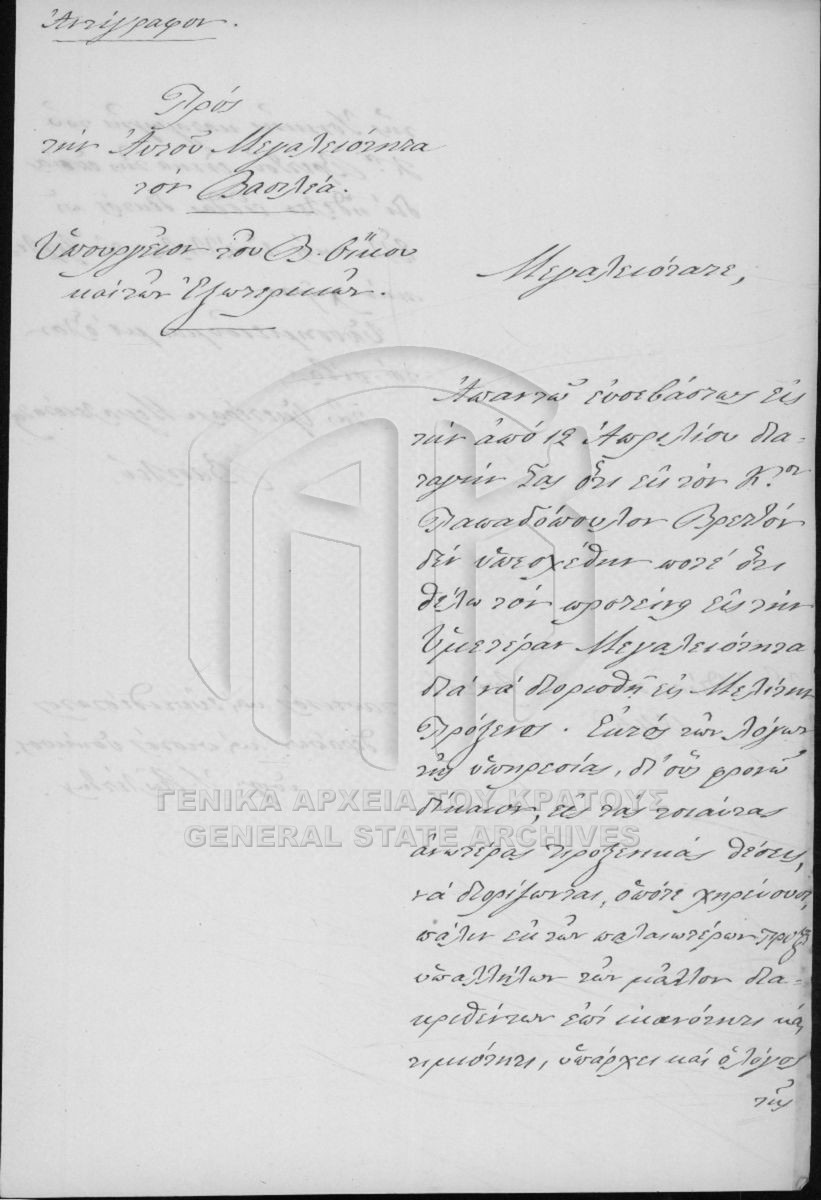 Ἀντίγραφον.
Πρὸς
τὴν Αὐτοῦ Μεγαλειότητα
τὸν Βασιλέα.
Ὑπουργεῖον τοῦ Β. Οἴκου
καὶ τῶν Ἐξωτερικῶν.
Μεγαλειότατε,
Ἀπαντῶ εὐσεβάστως εἰς
τὴν ἀπὸ 12 Ἀπριλίου δια-
ταγήν Σας ὅτι εἰς τὸν Κον
Παπαδόπουλον Βρεττὸν
δὲν ὑπεσχέθην ποτὲ ὅτι
θέλω τὸν προτείνῃ εἰς τὴν
Ὑμετέραν Μεγαλειότητα
διὰ νὰ διορισθῇ εἰς Μελίτην
Πρόξενος. Ἐκτὸς τῶν λόγων
τῆς ὑπηρεσίας, δι' οὓς φρονῶ
δίκαιον, εἰς τὰς τοιαύτας
ἀνωτέρας προξενικὰς θέσεις,
νὰ διορίζωνται, ὁπότε χηρεύουσι,
πάλιν ἐκ τῶν παλαιωτέρων προξ
ὑπαλλήλων τῶν μᾶλλον δια-
κριθέντων ἐπὶ ἱκανότητι καὶ
τιμιότητι, ὑπάρχει καὶ ὁ λόγος
τῆς
ΓΕΝΙΚΑ ΑΡΧΕΙΑ ΤΟΥ ΚΡΑΤΟΥΣ
GENERAL STATE ARCHIVES